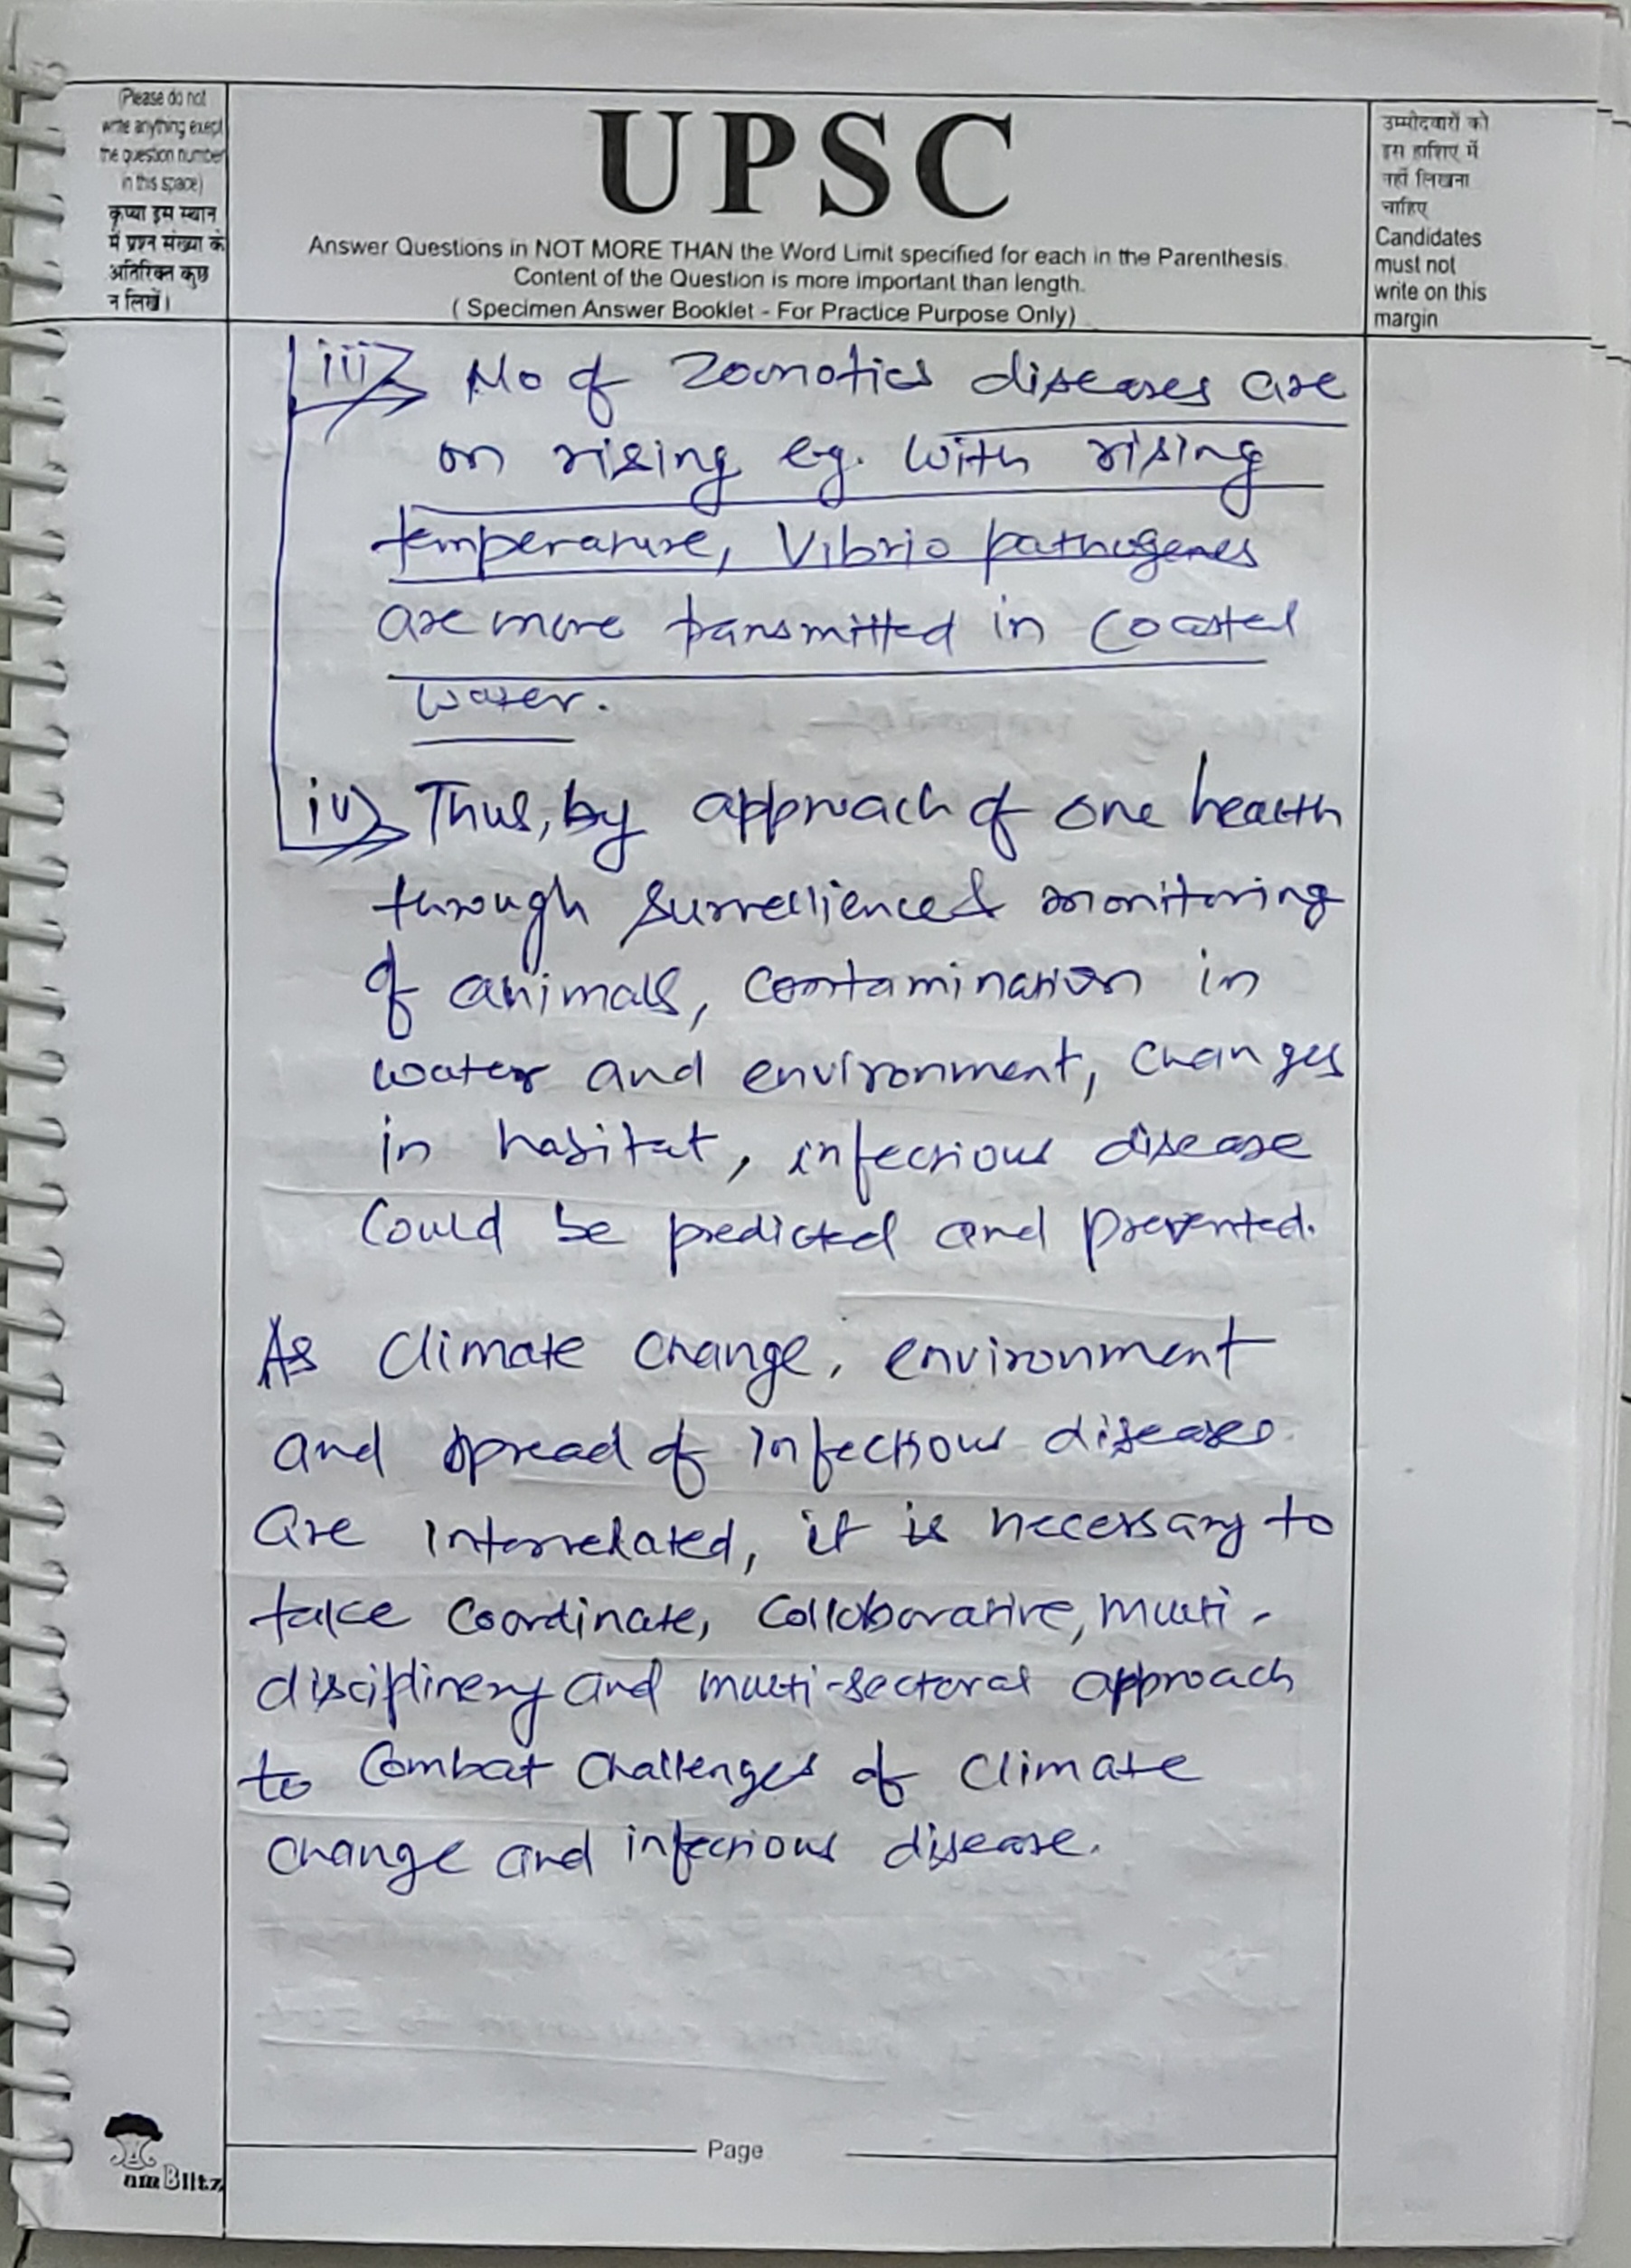 (Please do not
write anything exept
the question number
in this space)
कृप्या इस स्थान
में प्रश्न संख्या के
अतिरिक्त कुछ
न लिखें।
UPSC
Answer Questions in NOT MORE THAN the Word Limit specified for each in the Parenthesis.
Content of the Question is more important than length.
( Specimen Answer Booklet - For Practice Purpose Only)
उम्मीदवारों को
इस हाशिए में
नहीं लिखना
चाहिए
Candidates
must not
write on this
margin
iii) No of Zoonotics diseases are
on rising eg. with rising
temperature, Vibrio pathogenes
are more transmitted in coastal
water.
iv) Thus, by approach of one health
through surveillience & monitoring
of animals, contamination in
water and environment, changes
in habitat, infectious disease
could be predicted and prevented.
As climate change, environment
and spread of infectious diseases
are interrelated, it is necessary to
take coordinate, colloborative, multi-
disciplinery and multi-sectoral approach
to combat challenges of climate
change and infectious disease.
Page
Blitz